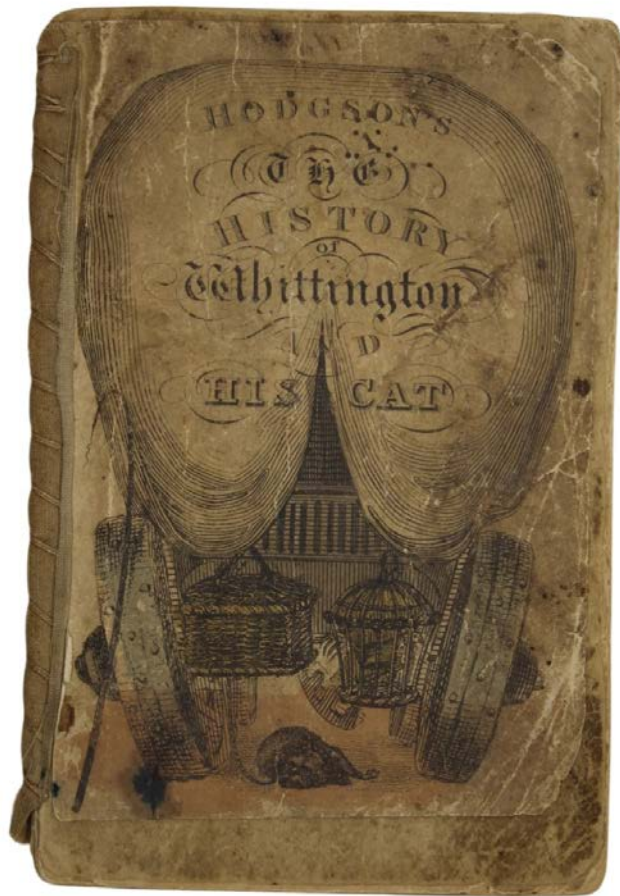 HODGSON'S
THE
HISTORY
of
Whittington
D
HIS CAT